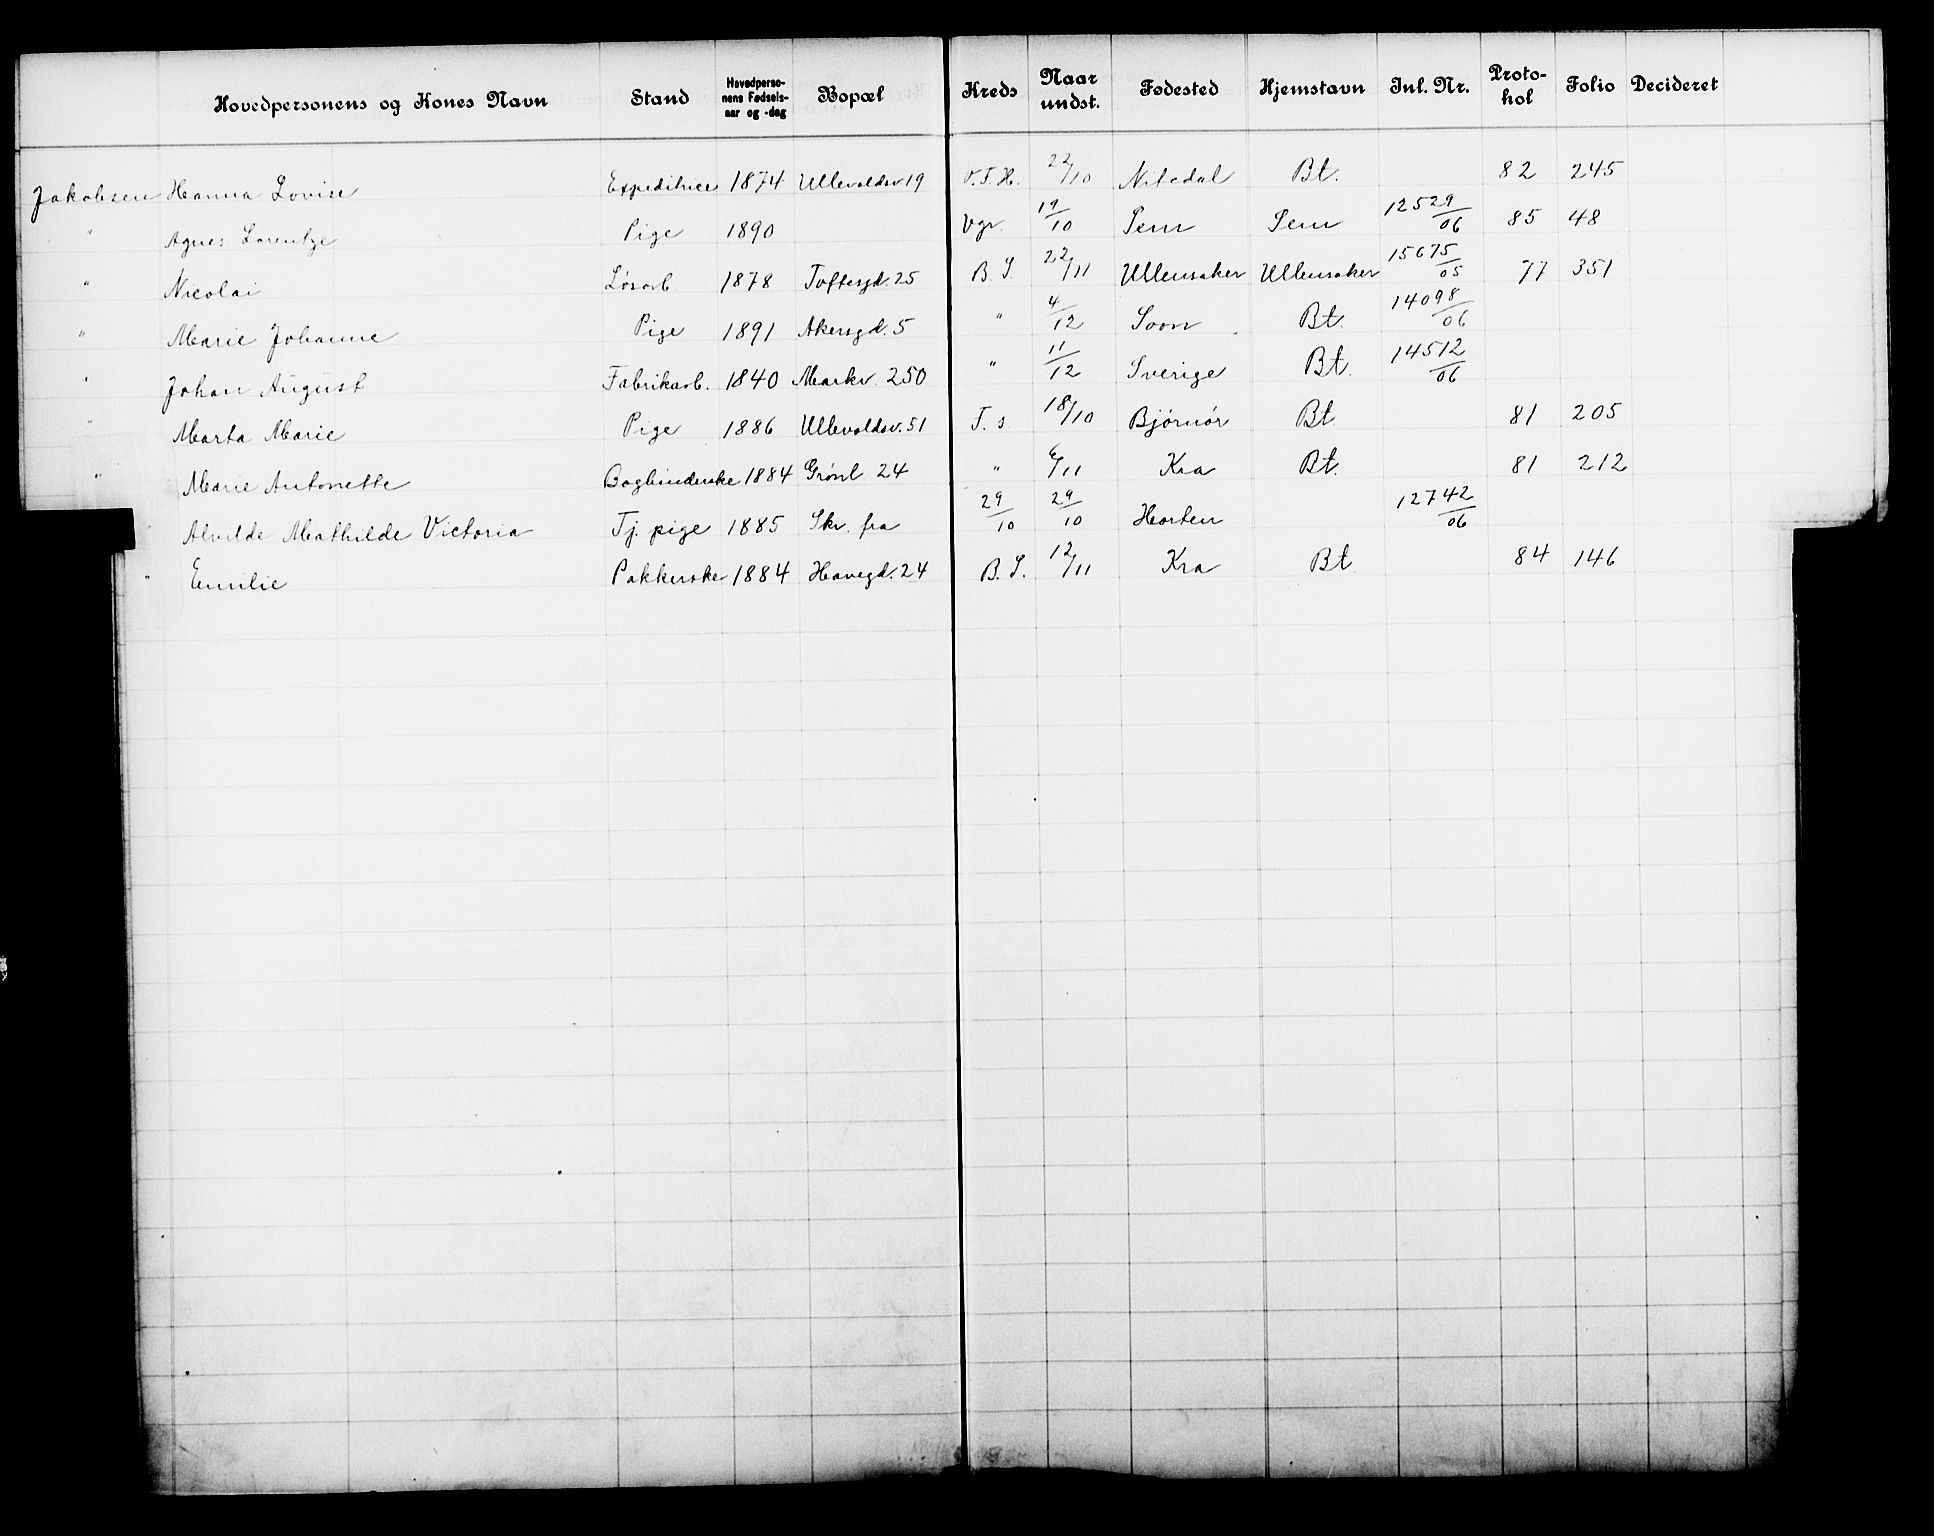 Hovedpersonens og Kones Navn Stand Hovedperso-nens Fødsels-aar og -dag Bopæl Kreds Naar undst. Fødested Hjemstavn Inl. Nr. Proto-kol Folio Decideret
Jakobsen Hanna Lovise Expeditrice 1874 Ullevoldsv 19 V.F.H. 22/10 Nitedal Bt. 82 245
" Agnes Lorentze Pige 1890 Vgr. 19/10 Sem Sem 12529/06 85 48
" Nicolai Løsarb. 1878 Toftesgd. 25 B. S. 22/11 Ullensaker Ullensaker 15675/05 77 351
" Marie Johanne Pige 1891 Akersgd. 5 " 4/12 Soon Bt. 14098/06
" Johan August Fabrikarb. 1840 Markv. 250 " 11/12 Sverige Bt. 14512/06
" Marta Marie Pige 1886 Ullevoldsv. 51 F. s. 18/10 Bjørnør Bt. 81 205
" Marie Antonette Bogbinderske 1884 Grønl. 24 " 6/11 Kra Bt. 81 212
Alvilde Mathilde Victoria Tj. pige 1885 Skr. fra 29/10 29/10 Horten 12742/06
" Emilie Pakkerske 1884 Havegd. 24 B. S. 12/11 Kra Bt 84 146